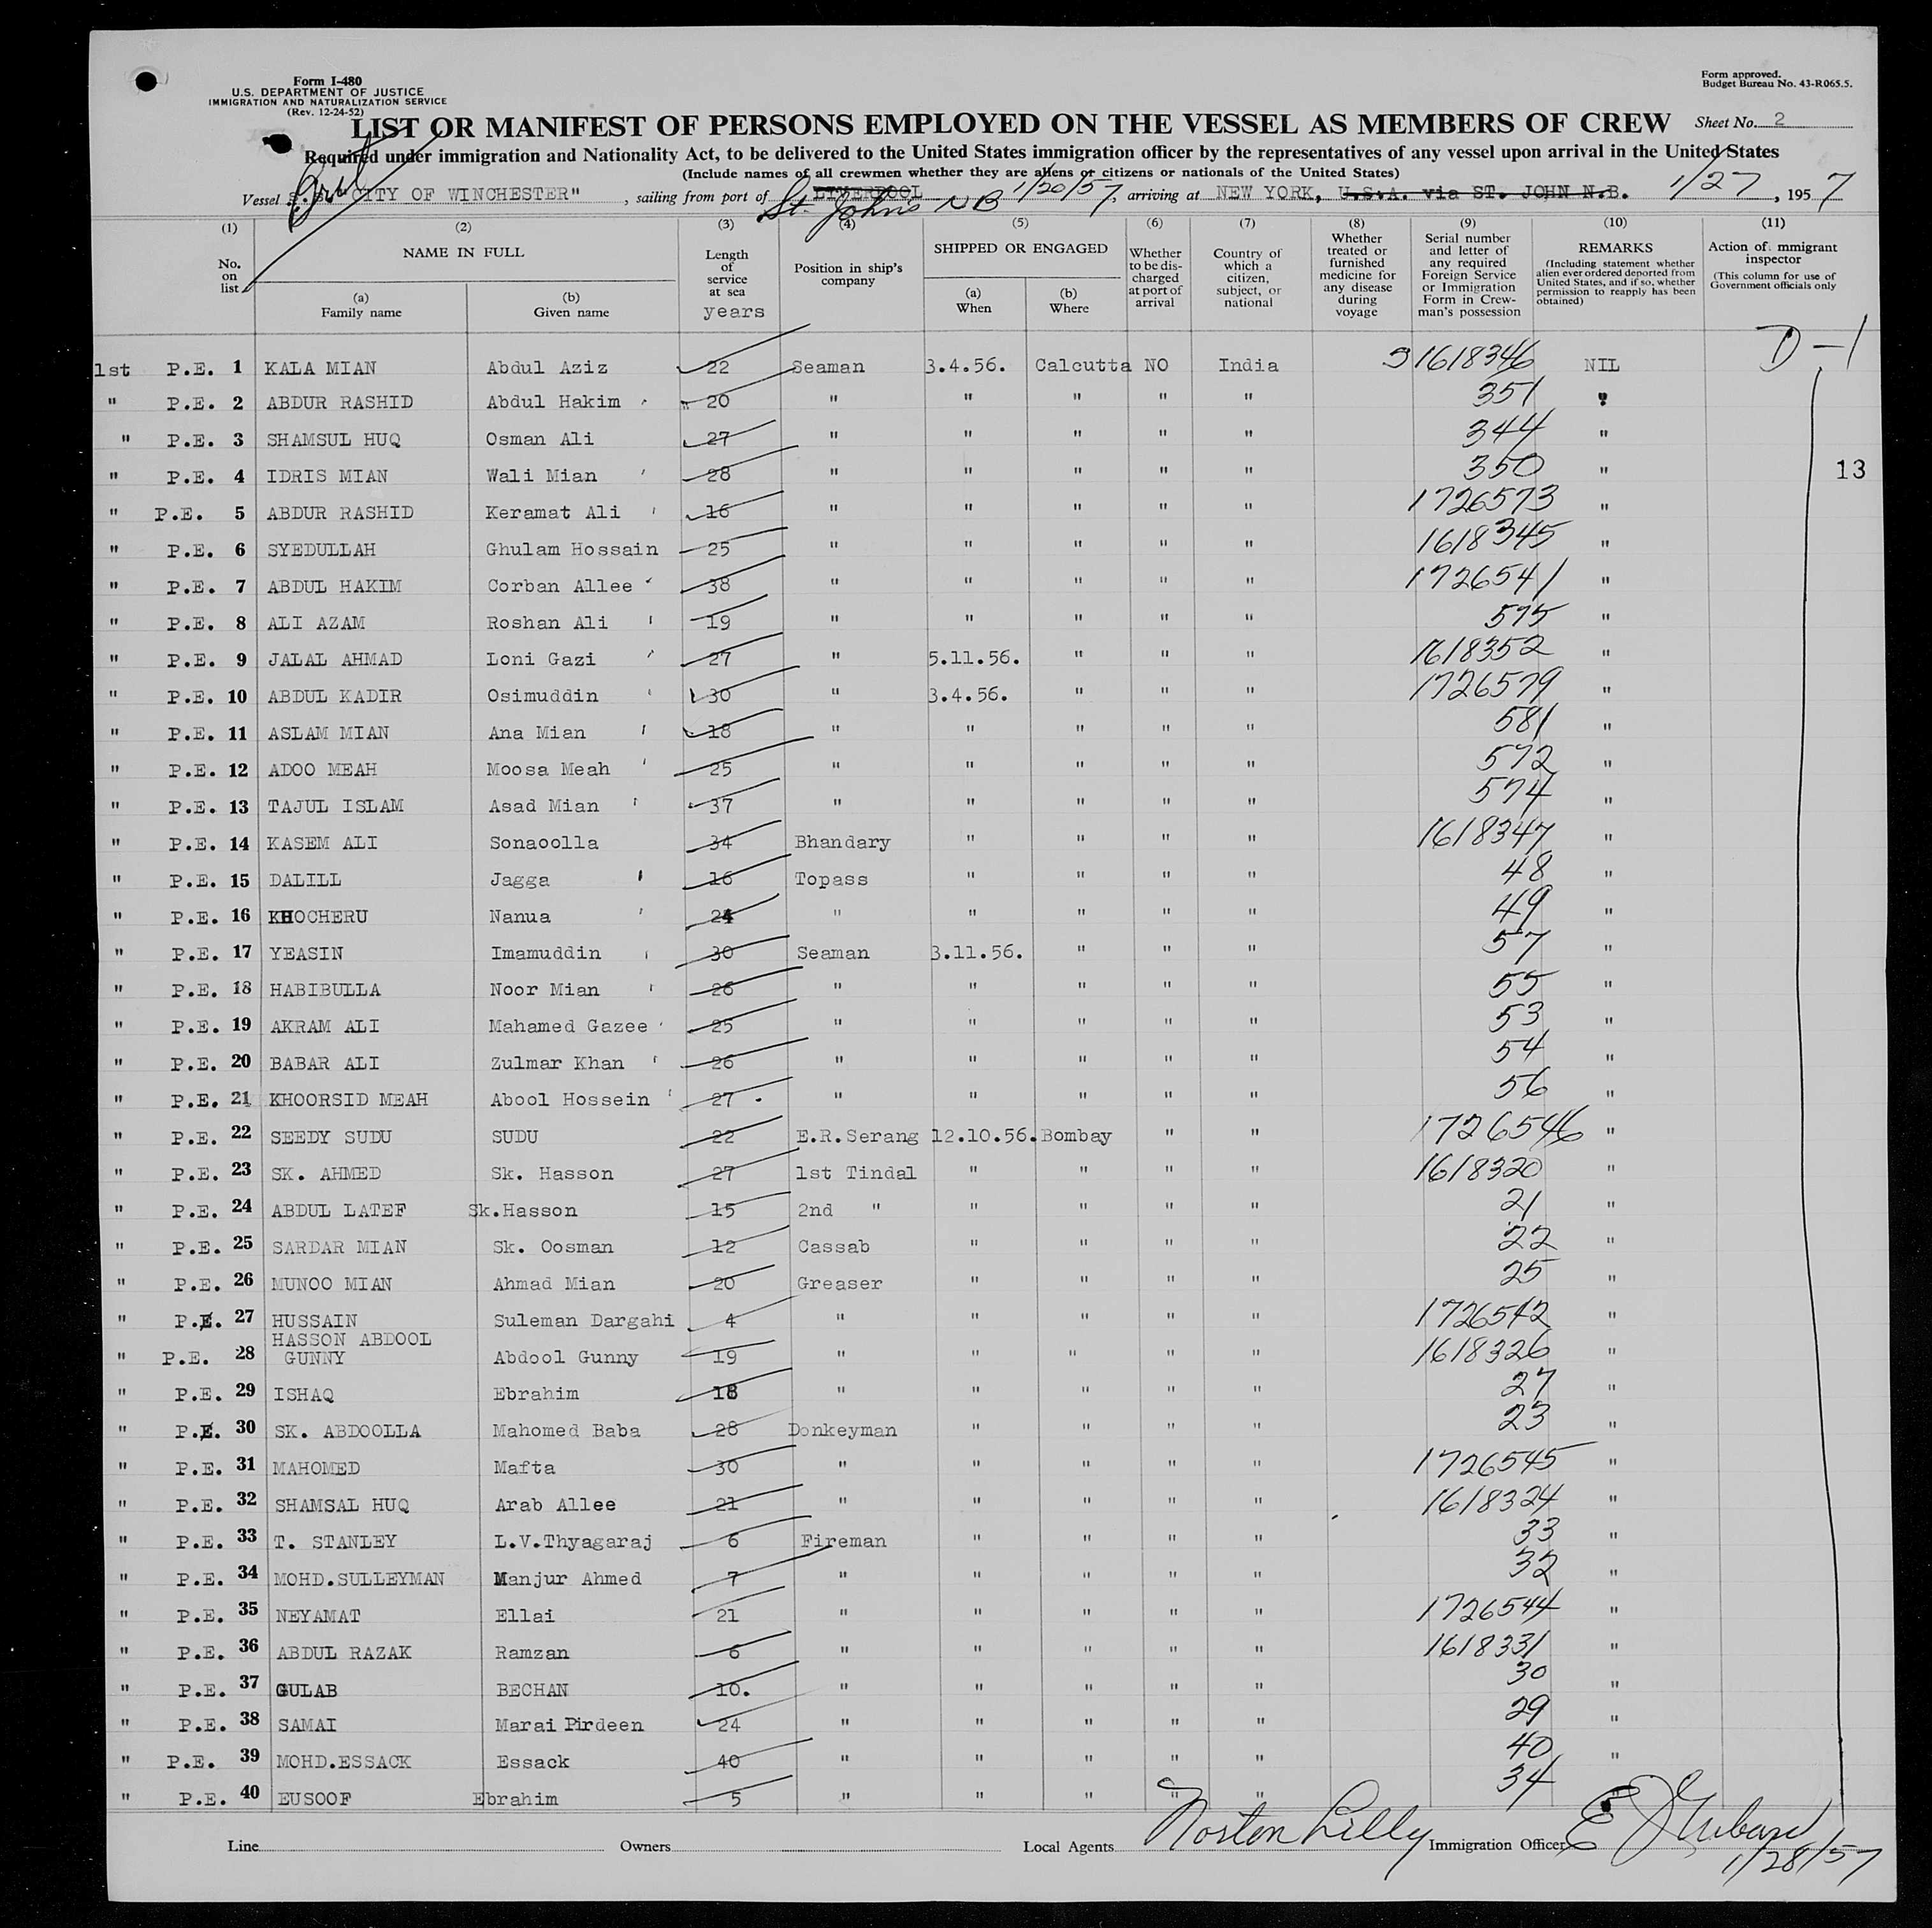 Form I-480
U.S. DEPARTMENT OF JUSTICE
IMMIGRATION AND NATURALIZATION SERVICE
(Rev. 12-24-52)
Form approved.
Budget Bureau No. 43-R065.5.
LIST OR MANIFEST OF PERSONS EMPLOYED ON THE VESSEL AS MEMBERS OF CREW
Sheet No. 2
Required under immigration and Nationality Act, to be delivered to the United States immigration officer by the representatives of any vessel upon arrival in the United States
(Include names of all crewmen whether they are aliens or citizens or nationals of the United States)
Vessel S.S. "CITY OF WINCHESTER", sailing from port of LIVERPOOL St. John's NB 1/20/57, arriving at NEW YORK, U.S.A. via ST. JOHN N.B. 1/27, 1957
(1) (2) (3) (4) (5) (6) (7) (8) (9) (10) (11)
No. on list
NAME IN FULL
(a) Family name
(b) Given name
Length of service at sea years
Position in ship's company
SHIPPED OR ENGAGED
(a) When
(b) Where
Whether to be discharged at port of arrival
Country of which a citizen, subject, or national
Whether treated or furnished medicine for any disease during voyage
Serial number and letter of any required Foreign Service or Immigration Form in Crewman's possession
REMARKS
(Including statement whether alien ever ordered deported from United States, and if so, whether permission to reapply has been obtained)
Action of mmigrant inspector
(This column for use of Government officials only
D-1
1st P.E. 1 KALA MIAN Abdul Aziz 22 Seaman 3.4.56. Calcutta NO India 1618346 NIL
" P.E. 2 ABDUR RASHID Abdul Hakim 20 " " " " " 351 "
" P.E. 3 SHAMSUL HUQ Osman Ali 27 " " " " " 344 "
" P.E. 4 IDRIS MIAN Wali Mian 28 " " " " " 350 " 13
" P.E. 5 ABDUR RASHID Keramat Ali 16 " " " " " 1726573 "
" P.E. 6 SYEDULLAH Ghulam Hossain 25 " " " " " 1618345 "
" P.E. 7 ABDUL HAKIM Corban Allee 38 " " " " " 1726541 "
" P.E. 8 ALI AZAM Roshan Ali 19 " " " " " 575 "
" P.E. 9 JALAL AHMAD Loni Gazi 27 " 5.11.56. " " " 1618352 "
" P.E. 10 ABDUL KADIR Osimuddin 30 " 3.4.56. " " " 1726579 "
" P.E. 11 ASLAM MIAN Ana Mian 18 " " " " " 581 "
" P.E. 12 ADOO MEAH Moosa Meah 25 " " " " " 572 "
" P.E. 13 TAJUL ISLAM Asad Mian 37 " " " " " 574 "
" P.E. 14 KASEM ALI Sonaoolla 34 Bhandary " " " " 1618347 "
" P.E. 15 DALILL Jagga 16 Topass " " " " 48 "
" P.E. 16 KHOCHERU Nanua 24 " " " " " 49 "
" P.E. 17 YEASIN Imamuddin 30 Seaman 3.11.56. " " " 57 "
" P.E. 18 HABIBULLA Noor Mian 26 " " " " " 55 "
" P.E. 19 AKRAM ALI Mahamed Gazee 25 " " " " " 53 "
" P.E. 20 BABAR ALI Zulmar Khan 26 " " " " " 54 "
" P.E. 21 KHOORSID MEAH Abool Hossein 27 " " " " " 56 "
" P.E. 22 SEEDY SUDU SUDU 22 E.R.Serang 12.10.56. Bombay " " 1726546 "
" P.E. 23 SK. AHMED Sk. Hasson 27 1st Tindal " " " " 1618320 "
" P.E. 24 ABDUL LATEF Sk.Hasson 15 2nd " " " " " 21 "
" P.E. 25 SARDAR MIAN Sk. Oosman 12 Cassab " " " " 22 "
" P.E. 26 MUNOO MIAN Ahmad Mian 20 Greaser " " " " 25 "
" P.E. 27 HUSSAIN Suleman Dargahi 4 " " " " " 1726542 "
" P.E. 28 HASSON ABDOOL GUNNY Abdool Gunny 19 " " " " " 1618326 "
" P.E. 29 ISHAQ Ebrahim 18 " " " " " 27 "
" P.E. 30 SK. ABDOOLLA Mahomed Baba 28 Donkeyman " " " " 23 "
" P.E. 31 MAHOMED Mafta 30 " " " " " 1726545 "
" P.E. 32 SHAMSAL HUQ Arab Allee 21 " " " " " 1618324 "
" P.E. 33 T. STANLEY L.V.Thyagaraj 6 Fireman " " " " 33 "
" P.E. 34 MOHD.SULLEYMAN Manjur Ahmed 7 " " " " " 32 "
" P.E. 35 NEYAMAT Ellai 21 " " " " " 1726544 "
" P.E. 36 ABDUL RAZAK Ramzan 6 " " " " " 1618331 "
" P.E. 37 GULAB BECHAN 10. " " " " " 30 "
" P.E. 38 SAMAI Marai Pirdeen 24 " " " " " 29 "
" P.E. 39 MOHD.ESSACK Essack 40 " " " " " 40 "
" P.E. 40 EUSOOF Ebrahim 5 " " " " " 34
Line Owners Local Agents Norton Lilly Immigration Officer
1/28/57